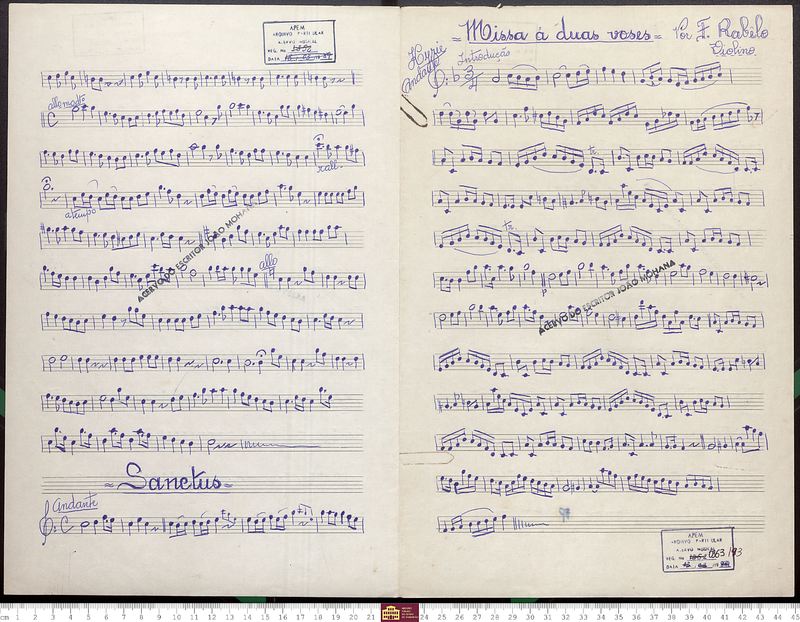 APEM
ARQUIVO PARTICULAR
ACERVO MUSICAL
REG. No
DATA
allo
rall.
a tempo
ACERVO DO ESCRITOR JOÃO MOHANA
allo
= Sanctus =
Andante
C
= Missa á duas voses =
Por F. Rabelo
Violino
Kyrie
Introdução
Andante
3/4
tr
tr
p
ACERVO DO ESCRITOR JOÃO MOHANA
APEM
ARQUIVO PARTICULAR
ACERVO MUSICAL
REG. No 263/93
DATA
cm 1 2 3 4 5 6 7 8 9 10 11 12 13 14 15 16 17 18 19 20 21 24 25 26 27 28 29 30 31 32 33 34 35 36 37 38 39 40 41 42 43 44 45